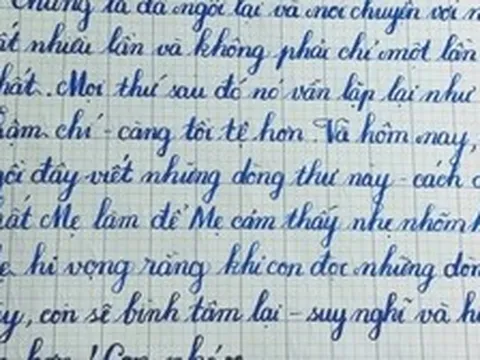 Chúng ta đã ngồi lại và nói chuyện với n
ất nhiều lần và không phải chỉ một lần
hất. Mọi thứ sau đó nó vẫn lặp lại như
hậm chí - càng tồi tệ hơn. Và hôm nay,
gồi đây viết những dòng thư này - cách d
hất Mẹ làm để Mẹ cảm thấy nhẹ nhõm h
ẹ hi vọng rằng khi con đọc những dòn
ày, con sẽ bình tâm lại - suy nghĩ và h
hơn! Con